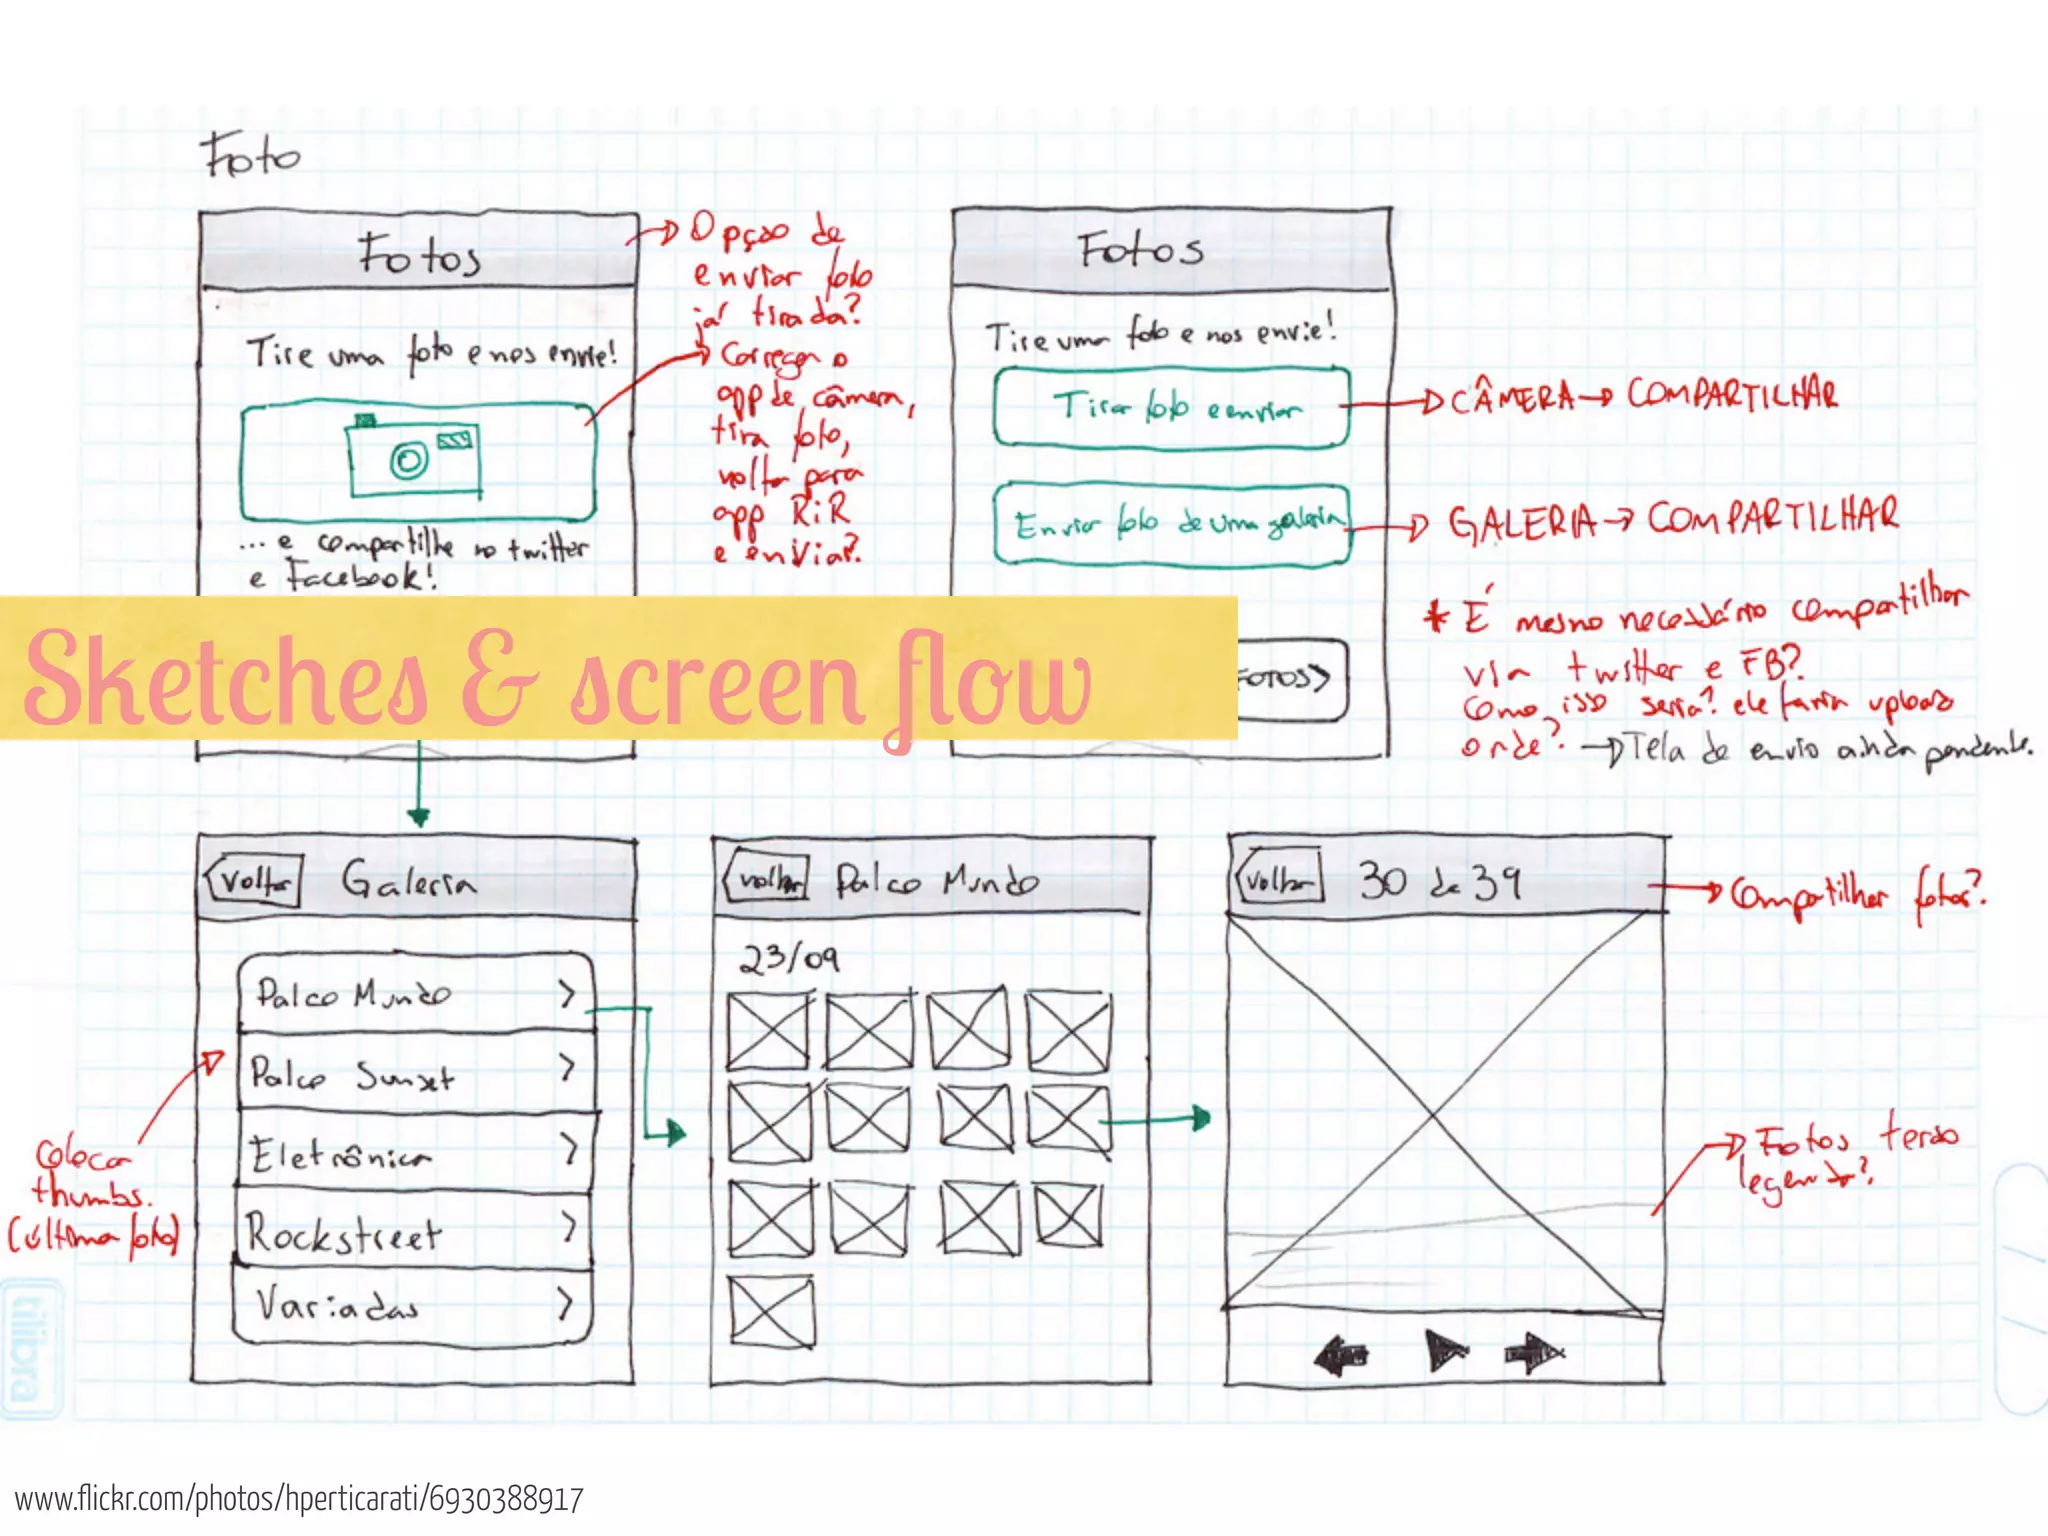 Foto
Fotos
Tire uma foto e nos envie!
... e compartilhe no twitter
e Facebook!
Opção de
enviar foto
já tirada?
Carrega o
app de câmera,
tira foto,
volta para
app RiR
e enviar?
Fotos
Tire uma foto e nos envie!
Tirar foto e enviar
Enviar foto de uma galeria
FOTOS >
CÂMERA → COMPARTILHAR
GALERIA → COMPARTILHAR
* É mesmo necessário compartilhar
via twitter e FB?
Como isso seria? ele faria upload
onde? → Tela de envio ainda pendente.
Sketches & screen flow
volta Galeria
Palco Mundo >
Palco Sunset >
Eletrônica >
Rockstreet >
Variadas >
Colocar
thumbs.
(última foto)
voltar Palco Mundo
23/09
voltar 30 de 39
Compartilhar fotos?
Fotos terão
legenda?
tilibra
www.flickr.com/photos/hperticarati/6930388917